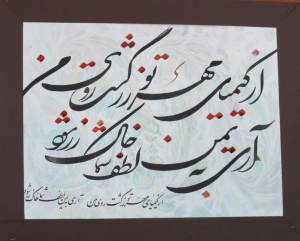 از کیمیای مهر تو زر گشت روی من
آری به یمن لطف شما خاک زر شود
از کیمیای مهر تو زر گشت روی من آری به یمن لطف شما خاک زر شود